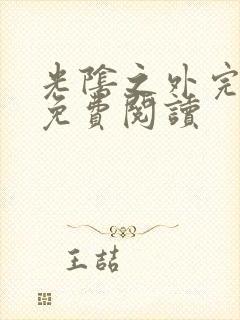 光陰之外完
免費閱讀
王喆